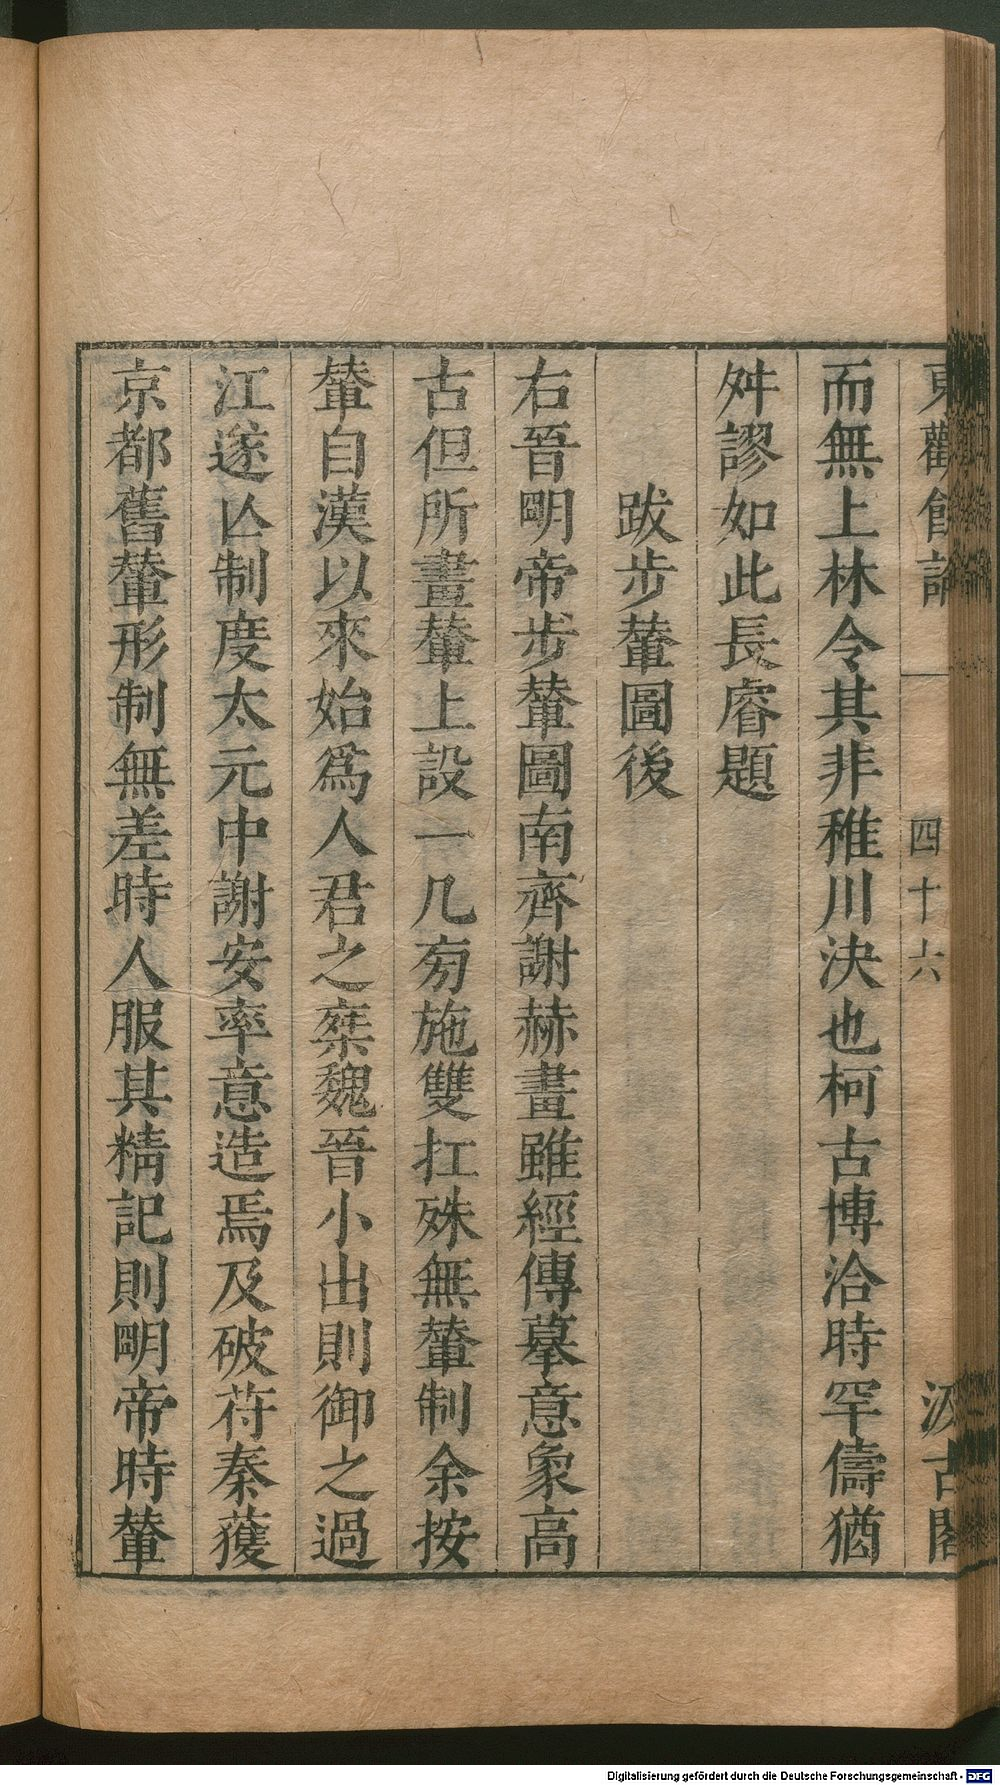 東觀餘論
四十六
汲古閣
而無上林令其非稚川決也柯古博洽時罕儔猶
舛謬如此長睿題
跋步輦圖後
右晉明帝步輦圖南齊謝赫畫雖經傳摹意象高
古但所畫輦上設一几旁施雙扛殊無輦制余按
輦自漢以來始爲人君之椉魏晉小出則御之過
江遂亾制度太元中謝安率意造焉及破苻秦獲
京都舊輦形制無差時人服其精記則明帝時輦
Digitalisierung gefördert durch die Deutsche Forschungsgemeinschaft - DFG